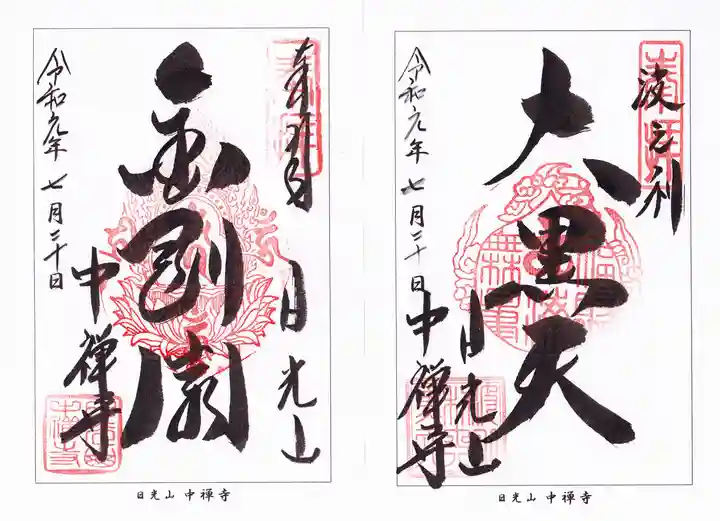 波之利
大黒天
日光山
中禅寺
令和元年七月二十日
日光山 中禅寺
金剛扇
日光山
中禅寺
令和元年七月二十日
日光山 中禅寺